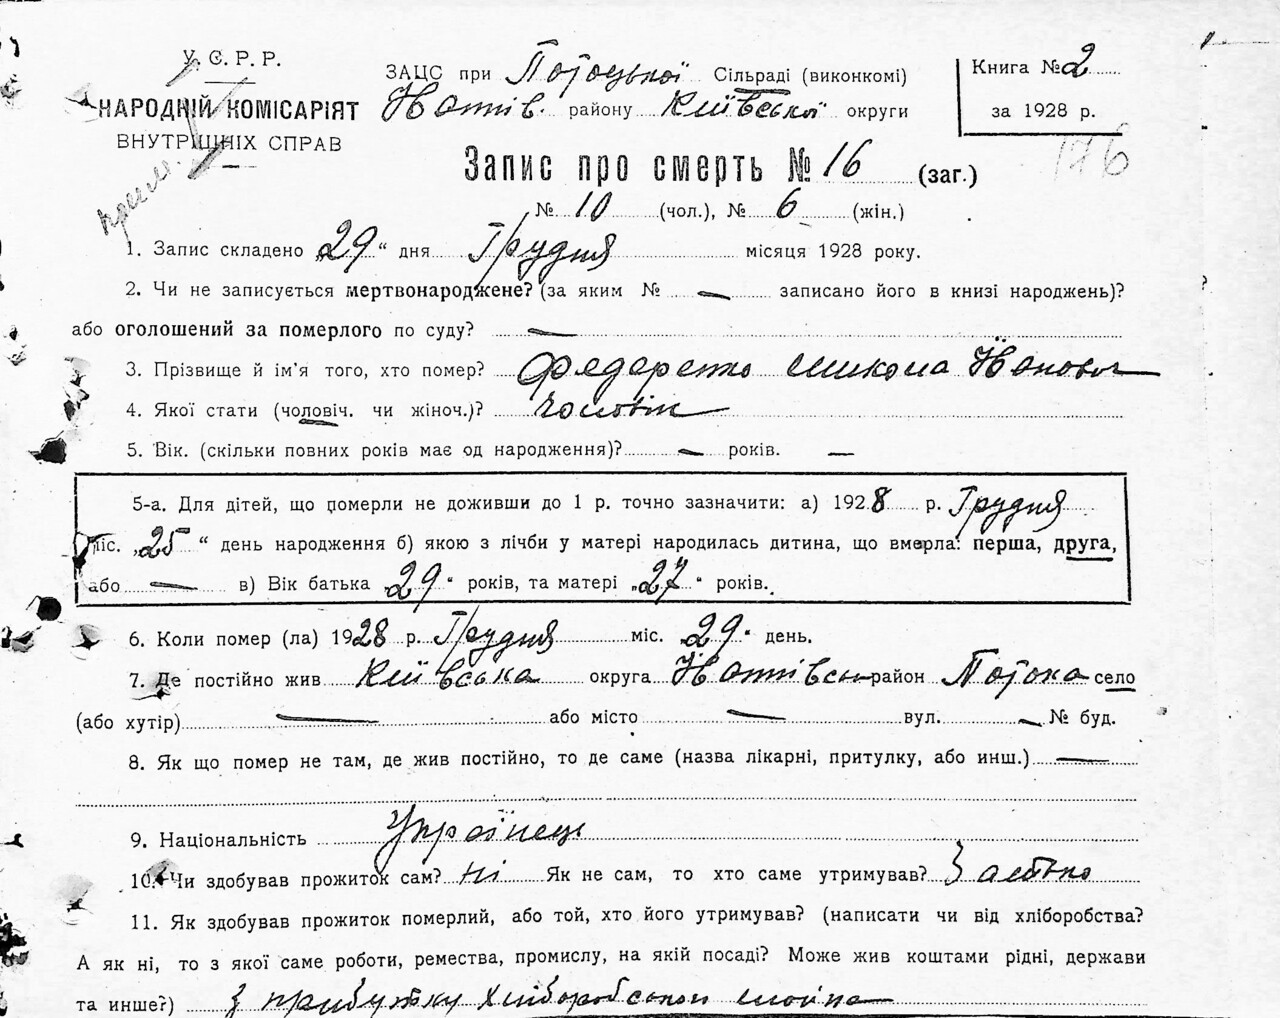 У. Є. Р. Р.
НАРОДНІЙ КОМІСАРІЯТ
ВНУТРІШНІХ СПРАВ
ЗАЦС при Потоцької Сільраді (виконкомі)
району Київської округи
Книга № 2
за 1928 р.
176
Запис про смерть № 16 (заг.)
№ 10 (чол.), № 6 (жін.)
1. Запис складено „29“ дня Грудня місяця 1928 року.
2. Чи не записується мертвонароджене? (за яким № — записано його в книзі народжень)?
або оголошений за померлого по суду? —
3. Прізвище й ім'я того, хто помер? Федоренко Микола
4. Якої стати (чоловіч. чи жіноч.)? чоловік
5. Вік. (скільки повних років має од народження)? — років. —
5-а. Для дітей, що померли не доживши до 1 р. точно зазначити: а) 1928 р. Грудня
міс. „25“ день народження б) якою з лічби у матері народилась дитина, що вмерла: перша, друга,
або — в) Вік батька 29 років, та матері „27“ років.
6. Коли помер (ла) 1928 р. Грудня міс. 29 день.
7. Де постійно жив Київська округа район Потока село
(або хутір) — або місто — вул. — № буд.
8. Як що помер не там, де жив постійно, то де саме (назва лікарні, притулку, або инш.) —
9. Національність Українець
10. Чи здобував прожиток сам? ні Як не сам, то хто саме утримував?
11. Як здобував прожиток померлий, або той, хто його утримував? (написати чи від хліборобства?
А як ні, то з якої саме роботи, ремества, промислу, на якій посаді? Може жив коштами рідні, держави
та инше?) з прибутку